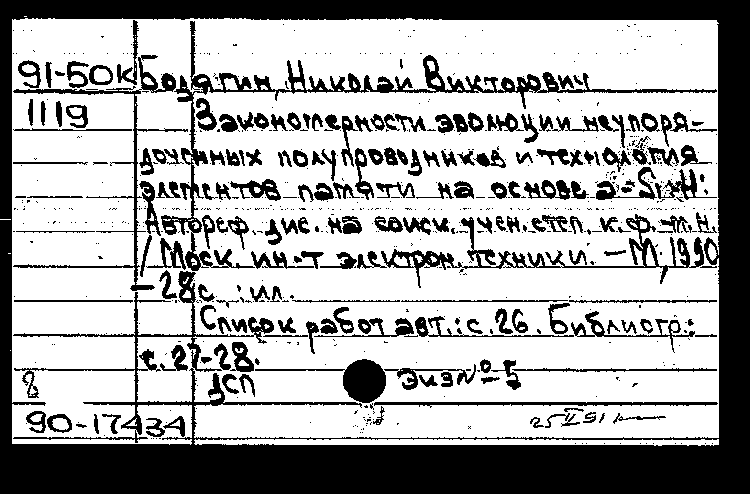 91-50к Бодягин, Николай Викторович
1119 Закономерности эволюции неупоря-
доченных полупроводников и технология
элементов памяти на основе a-Si:H:
Автореф. дис. на соиск. учен. степ. к.ф.-м.н.
/ Моск. ин-т электрон. техники. - М, 1990
- 28с. : ил.
Список работ авт.: с. 26. Библиогр.:
с. 27-28.
8 ДСП Экз № 5
90-17434 25 II 91